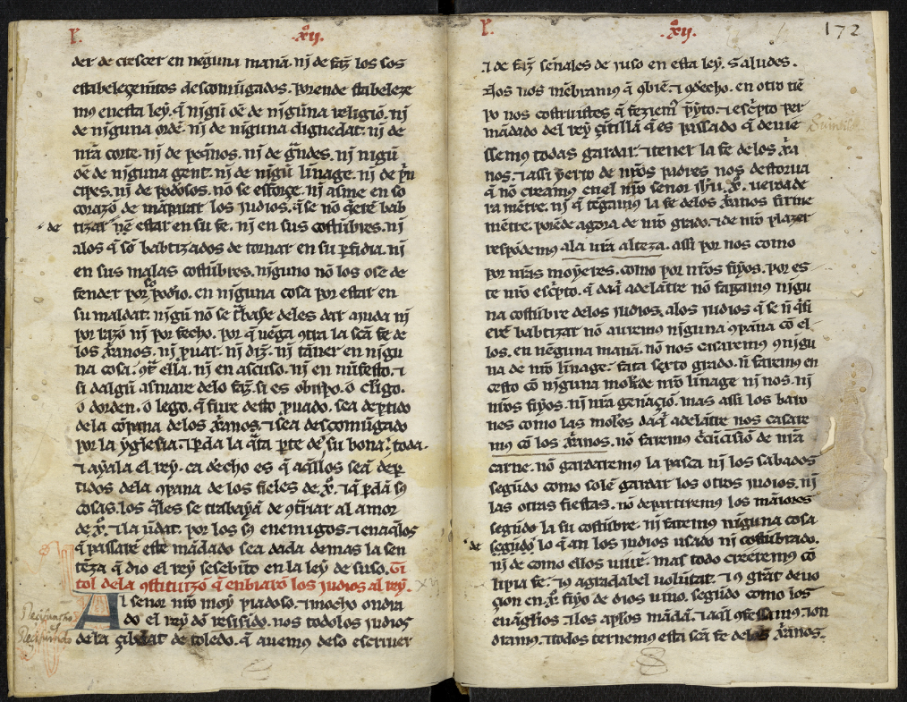 L.
xij.
der de crescer en neguna manã. nj de faz̃ los sos
estableçemĩtos descomũgados. Porende stabeleze
mꝰ en esta ley. q̃ nigũ oẽ de niguna religiõ. nj
de niguna ordẽ. nj de niguna dignedat. nj de
nr̃a corte. nj de peq̃nos. nj de grãdes. nj nigũ
oẽ de niguna gent. nj de nigũ linage. nj de p̃n
cipes. nj de podosos. nõ se efforçe. nj asme en so
coraçõ de mãparar los judios. q̃ se nõ q̃sierẽ bab
tizar
de
estar en su fe. nj en sus costũbres. nj
alos q̃ sõ babtizados de tornar en su ꝑfidia. nj
en sus malas costũbres. niguno nõ los ose de
fender por so podrio. en niguna cosa por estar en
su maldat. nigũ nõ se trabaye deles dar aiuda nj
por razõ nj por fecho. por q̃ uẽga ꝯtra la scã fe de
los xp̃anos. nj priuat. nj diz̃. nj tãner en nigu
na cosa. ꝯtr̃ ella. nj en ascuso. nj en mãifesto. ⁊
si dalgũ asmare delo faz̃. si es obispo. o cl̃igo.
o dorden. o lego. q̃ fure desto prouado. sea deꝑtido
de la cõpaña de los xp̃anos. ⁊ sea descomũgado
por la yglesia. ⁊ ꝑda la q̃rta ꝑte de su bona. toda.
⁊ ayala el rey. ca derecho es q̃ aq̃llos seã deꝑ
tidos dela ꝯpaña de los fieles de xp̃o. ⁊ q̃ ꝑdã sꝰ
cosas. los q̃les se trabaiã de ꝯtrariar al amor
de xp̃o. ⁊ la uerdat. por los sꝰ enemigos. ⁊ en aq̃los
q̃ passarẽ este mãdado sea dada demas la sen
tẽza q̃ dio el rey sesebuto en la ley de suso. Ti
tol dela ꝯstituizõ q̃ enbiarõ los judios al rey.
Al senor nr̃o moy piadoso. ⁊ mocho ondra
do el rey dõ resisido. nos todolos judios
de la çibdat de toledo. q̃ auemos deso escreuer
L.
xij.
172
⁊ de faz̃ señales de iuso en esta ley. Saludes.
nos mẽbramꝰ q̃ ꝯ bien ⁊ ꝯ derecho. en otro tiẽ
po nos costreñistes q̃ feziemꝰ pleyto. ⁊ escrito per
mãdado del rey çintillã q̃ es passado q̃ deuie
ssemꝰ todas gardar. ⁊ tener la fe de los xp̃ia
nos. ⁊ assi
de nr̃os padres nos destorua
q̃ nõ creamꝰ en el nr̃o señor ih̃u xp̃o. uerdade
ra mẽtre. nj q̃ tẽgamꝰ la fe delos xp̃anos firme
mẽtre. porẽde agora de nr̃o grado. ⁊ de nr̃o plazer
respõdemꝰ ala ur̃a alteza. assi por nos como
por nr̃as moyeres. como por nr̃os fiyos. por es
te nr̃o escrito. q̃ daq̃ adelãtre nõ fagamꝰ nigu
na costũbre delos judios. alos judios q̃ se nõ q̃si
erẽ babtizar nõ auremꝰ niguna ꝯpaña cõ el
los. en neguna manã. nõ nos casaremꝰ ꝯ nigu
na de nr̃o linage. fata sexto grado. nj faremꝰ en
cesto cõ niguna moier de nr̃o linage nj nos. nj
nr̃os fiyos. nj nr̃a generaçiõ. mas assi los baro
nes como las moieres daq̃ adelãtre nos casare
mꝰ cõ los xp̃anos. nõ faremꝰ circũcisiõ de nr̃a
carne. nõ gardaremꝰ la pasca nj los sabados
segũdo como solẽ gardar los otros judios. nj
las otras fiestas. nõ departiremꝰ los mãiares
segũdo la su costũbre. nj faremꝰ niguna cosa
de segũdo lo q̃ an los judios usado nj costũbrado.
nj de como ellos uiuẽ. mas todo creeremꝰ cõ
lipia fe. ⁊ cõ agradabel uolũtat. ⁊ cõ grãt deuo
çion en xp̃o fiyo de dios uiuo. segũdo como los
euãglios ⁊ los apl̃os mãdã. ⁊ a el
⁊ on
dramꝰ. ⁊ todos ternemꝰ esta scã fe delos xp̃anos.